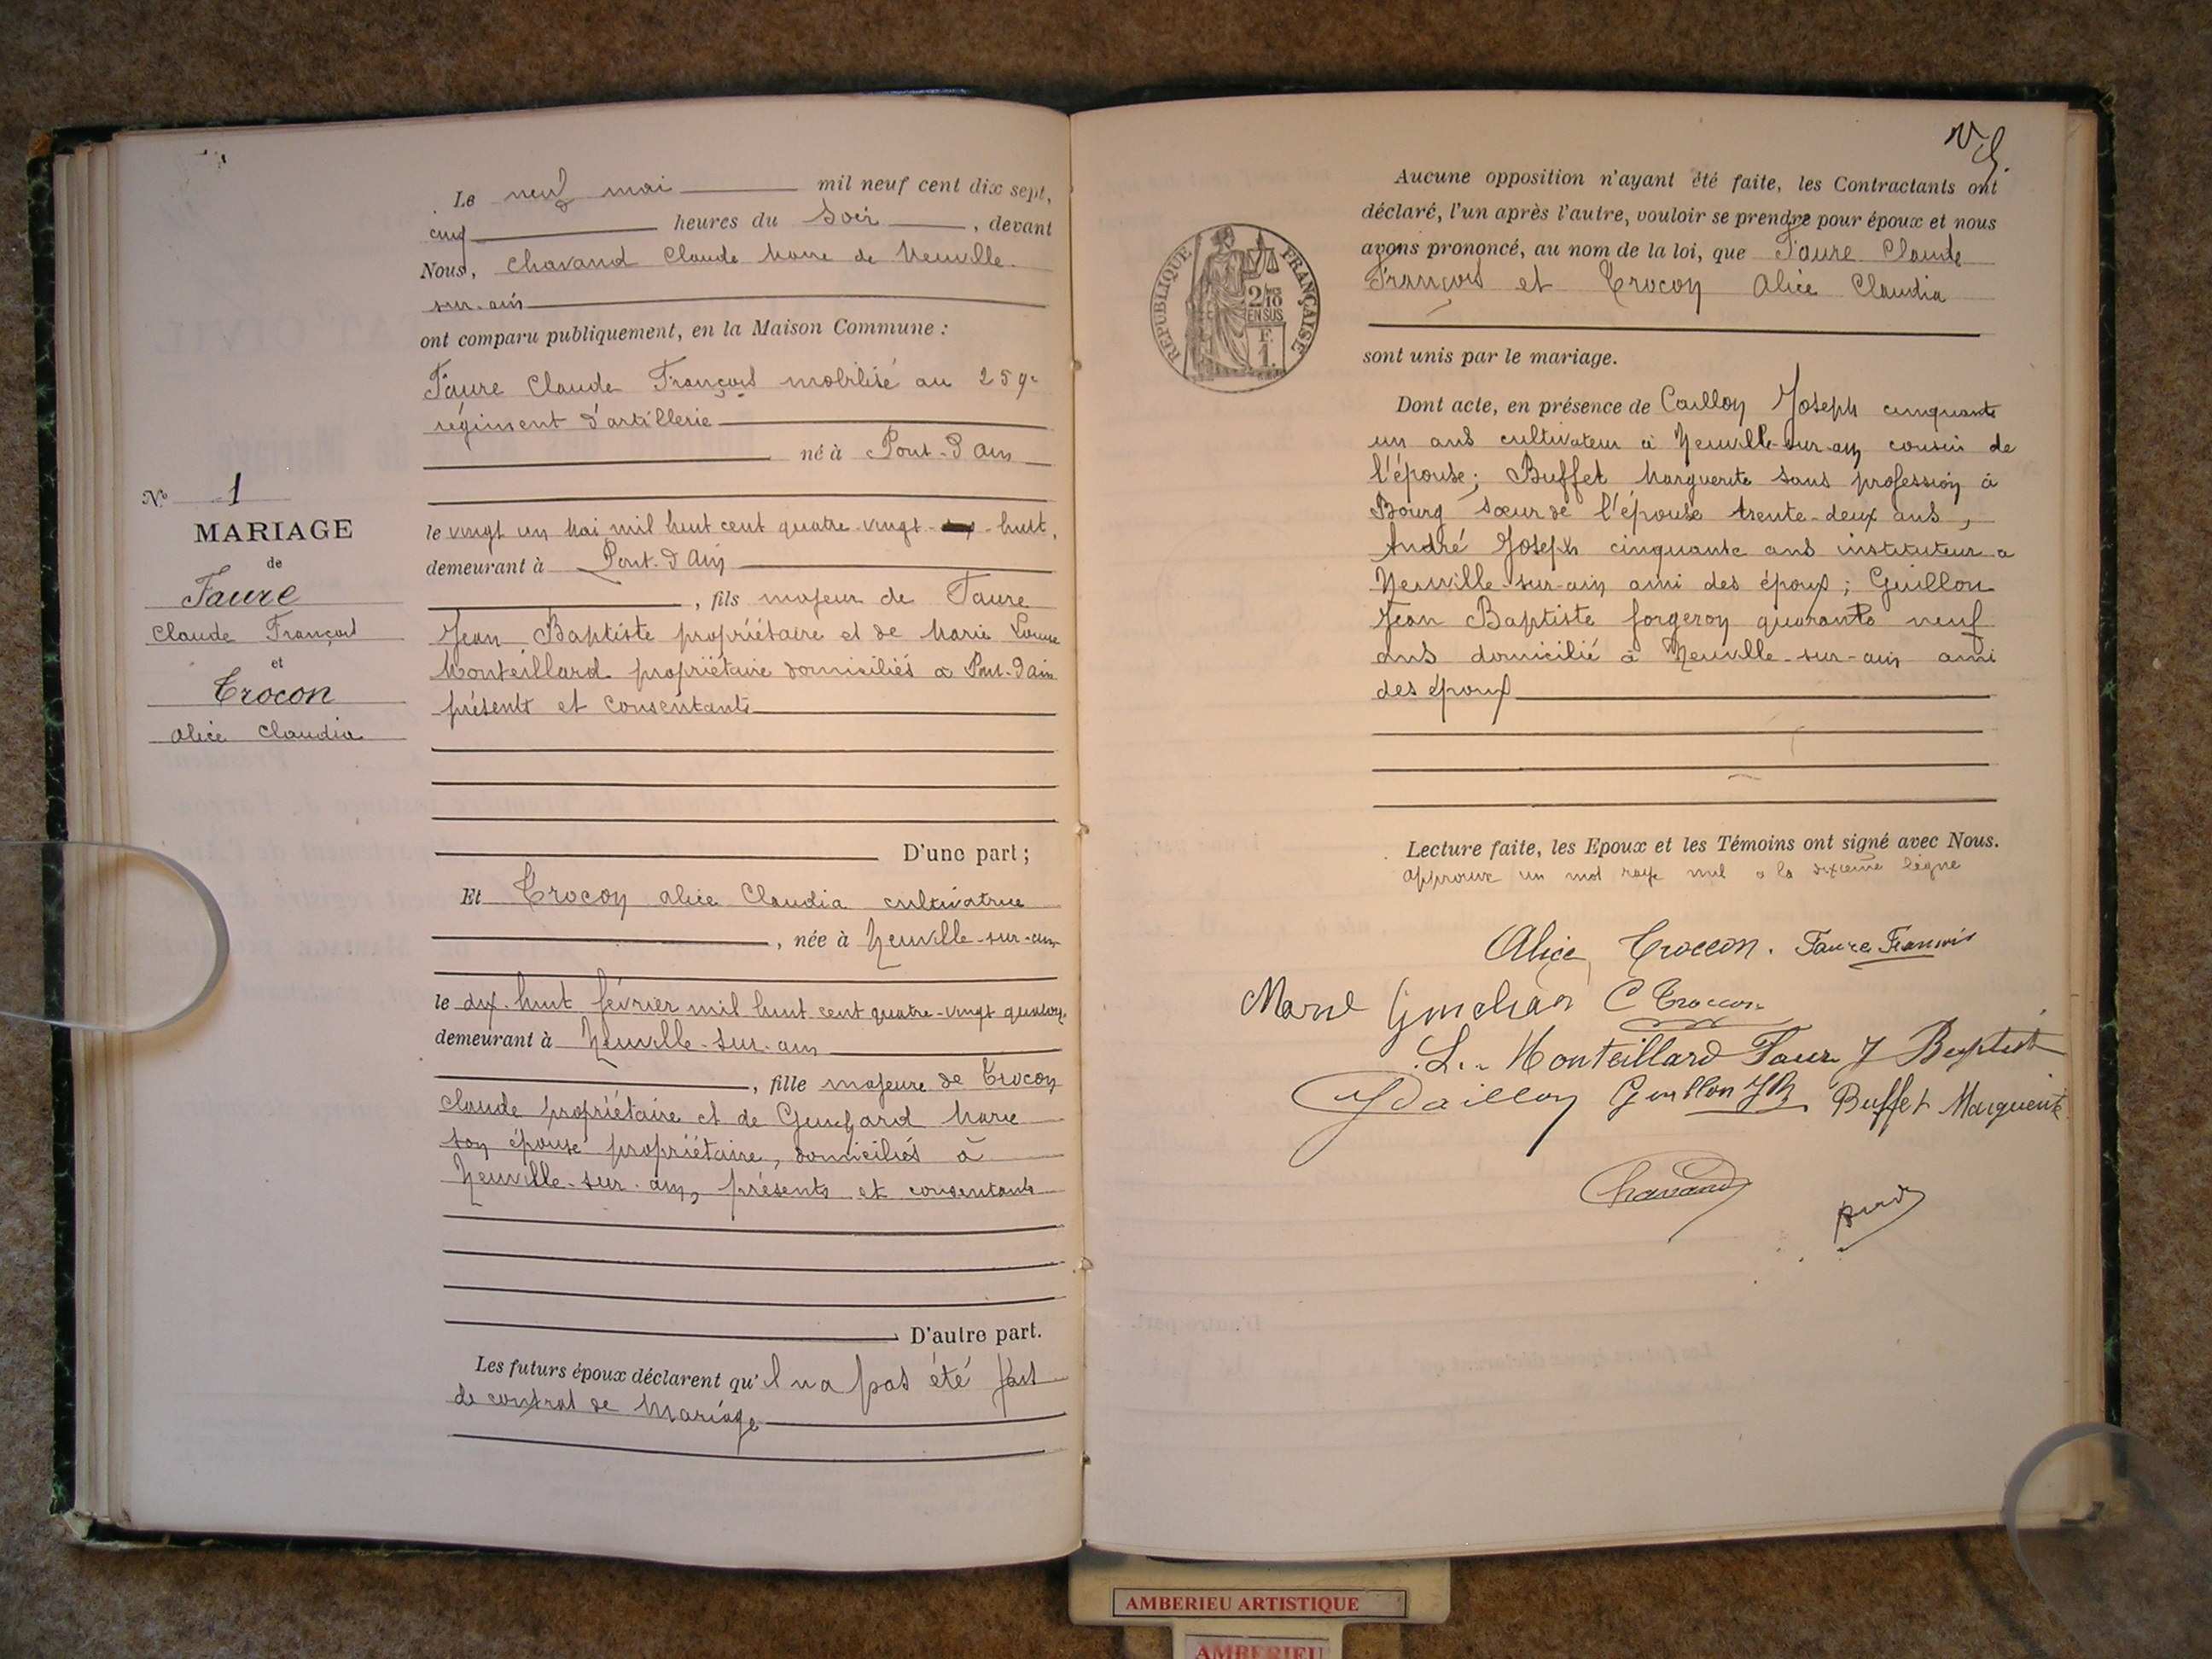 Le neuf mai mil neuf cent dix sept,
cinq heures du soir, devant
Nous, Chavand Claude Maire de Neuville
sur-ain
ont comparu publiquement, en la Maison Commune :
Faure Claude François mobilisé au 259e
régiment d'artillerie
né à Pont-d'Ain
le vingt un Mai mil huit cent quatre-vingt - huit,
demeurant à Pont-d'Ain
, fils majeur de Faure
Jean Baptiste propriétaire et de Marie Louise
Monteillard propriétaire domiciliés à Pont-d'Ain
présents et consentants
D'une part ;
Et Trocon Alice Claudia cultivatrice
, née à Neuville-sur-ain
le dix-huit février mil huit cent quatre-vingt quatorze
demeurant à Neuville-sur-ain
, fille majeure de Trocon
Claude propriétaire et de Guichard Marie
son épouse propriétaire, domiciliés à
Neuville-sur-ain, présents et consentants
D'autre part.
Les futurs époux déclarent qu'il n'a pas été fait
de contrat de Mariage
No 1
MARIAGE
de
Faure
Claude François
et
Trocon
Alice Claudia
Aucune opposition n'ayant été faite, les Contractants ont
déclaré, l'un après l'autre, vouloir se prendre pour époux et nous
avons prononcé, au nom de la loi, que Faure Claude
François et Trocon Alice Claudia
sont unis par le mariage.
REPUBLIQUE FRANÇAISE
2/10
EN SUS
F.
1.
Dont acte, en présence de Caillon Joseph cinquante
un ans cultivateur à Neuville-sur-ain cousin de
l'épouse ; Buffet Marguerite sans profession à
Bourg sœur de l'épouse trente-deux ans,
André Joseph cinquante ans instituteur a
Neuville-sur-ain ami des époux ; Guillon
Jean Baptiste forgeron quarante neuf
ans domicilié à Neuville-sur-ain ami
des époux
Lecture faite, les Epoux et les Témoins ont signé avec Nous.
approuvé un mot rayé nul a la dixième ligne
Alice Troccon. Faure François
Marie Guichard C Troccon
L. Monteillard Faure J Baptist
Guillon JB Buffet Marguerite
Chavand
AMBERIEU ARTISTIQUE
AMBERIEU